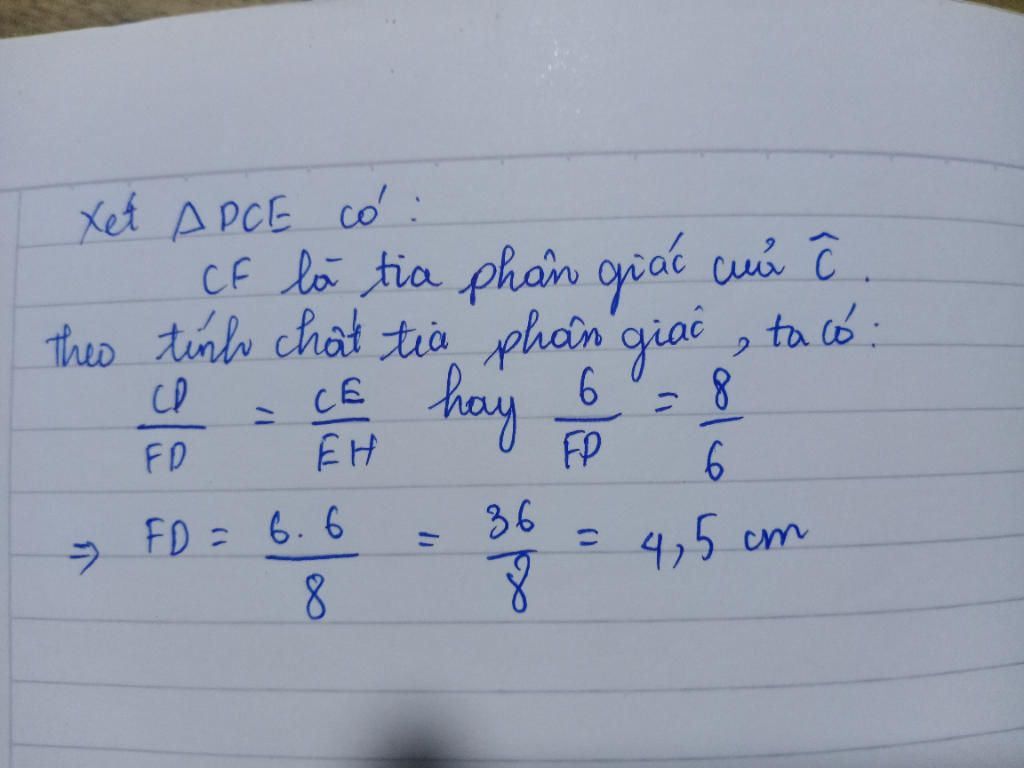 Xét Δ DCE có:
CF là tia phân giác của Ĉ.
theo tính chất tia phân giác, ta có:
CD/FD = CE/EH hay 6/FD = 8/6
⇒ FD = 6.6/8 = 36/8 = 4,5 cm